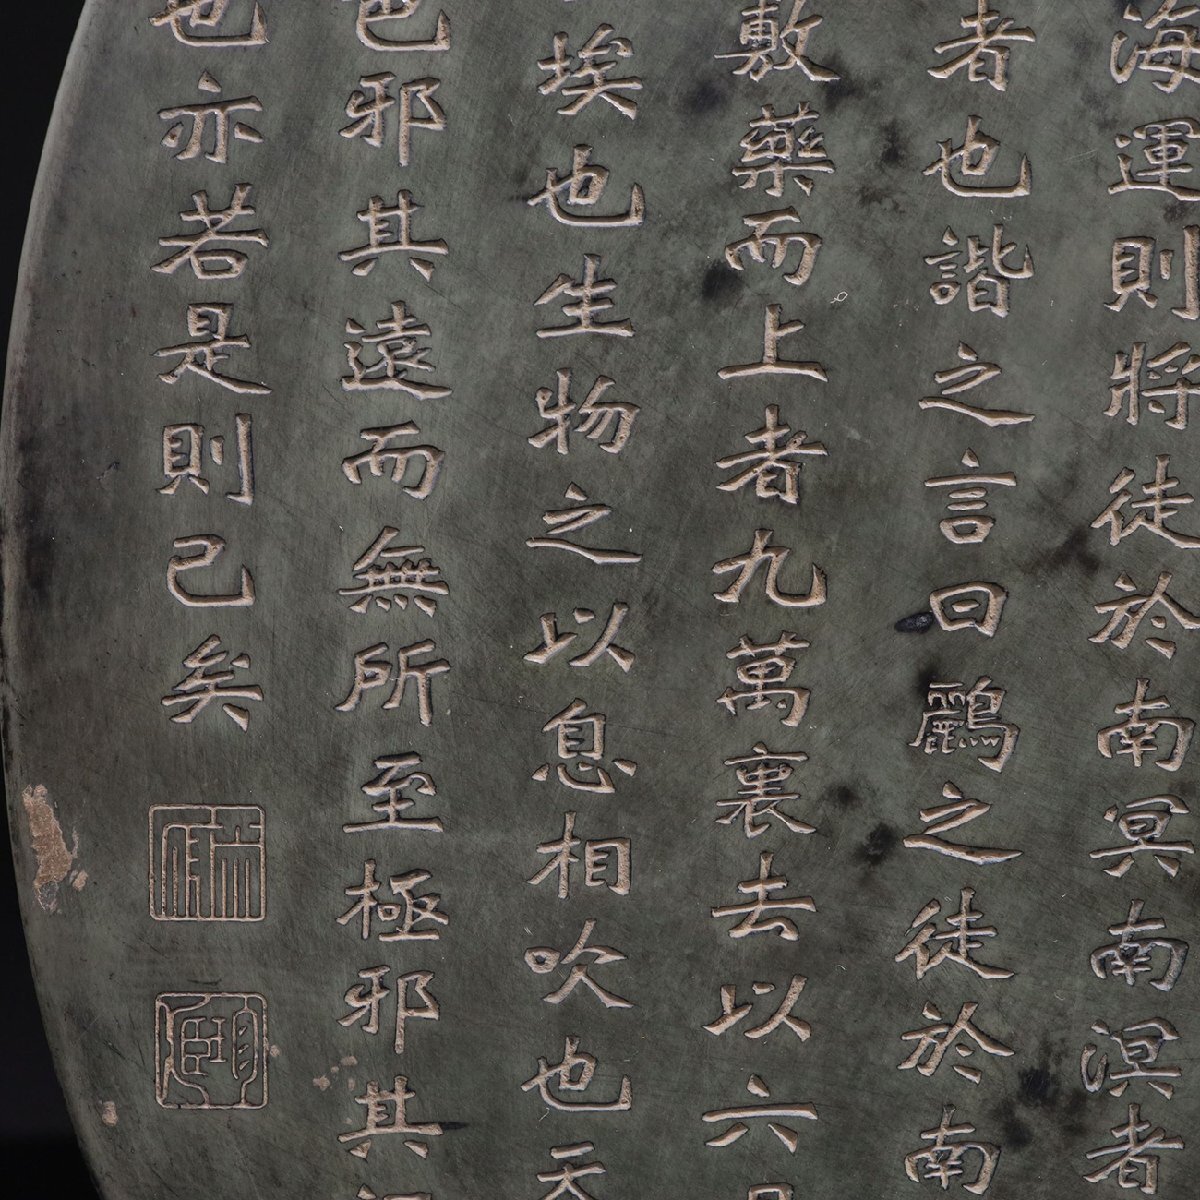 海運則將徒於南冥南溟者
者也諧之言曰鸝之徒於南
敷藥而上者九萬裏去以六
埃也生物之以息相吹也天
色邪其遠而無所至極邪其
也亦若是則己矣